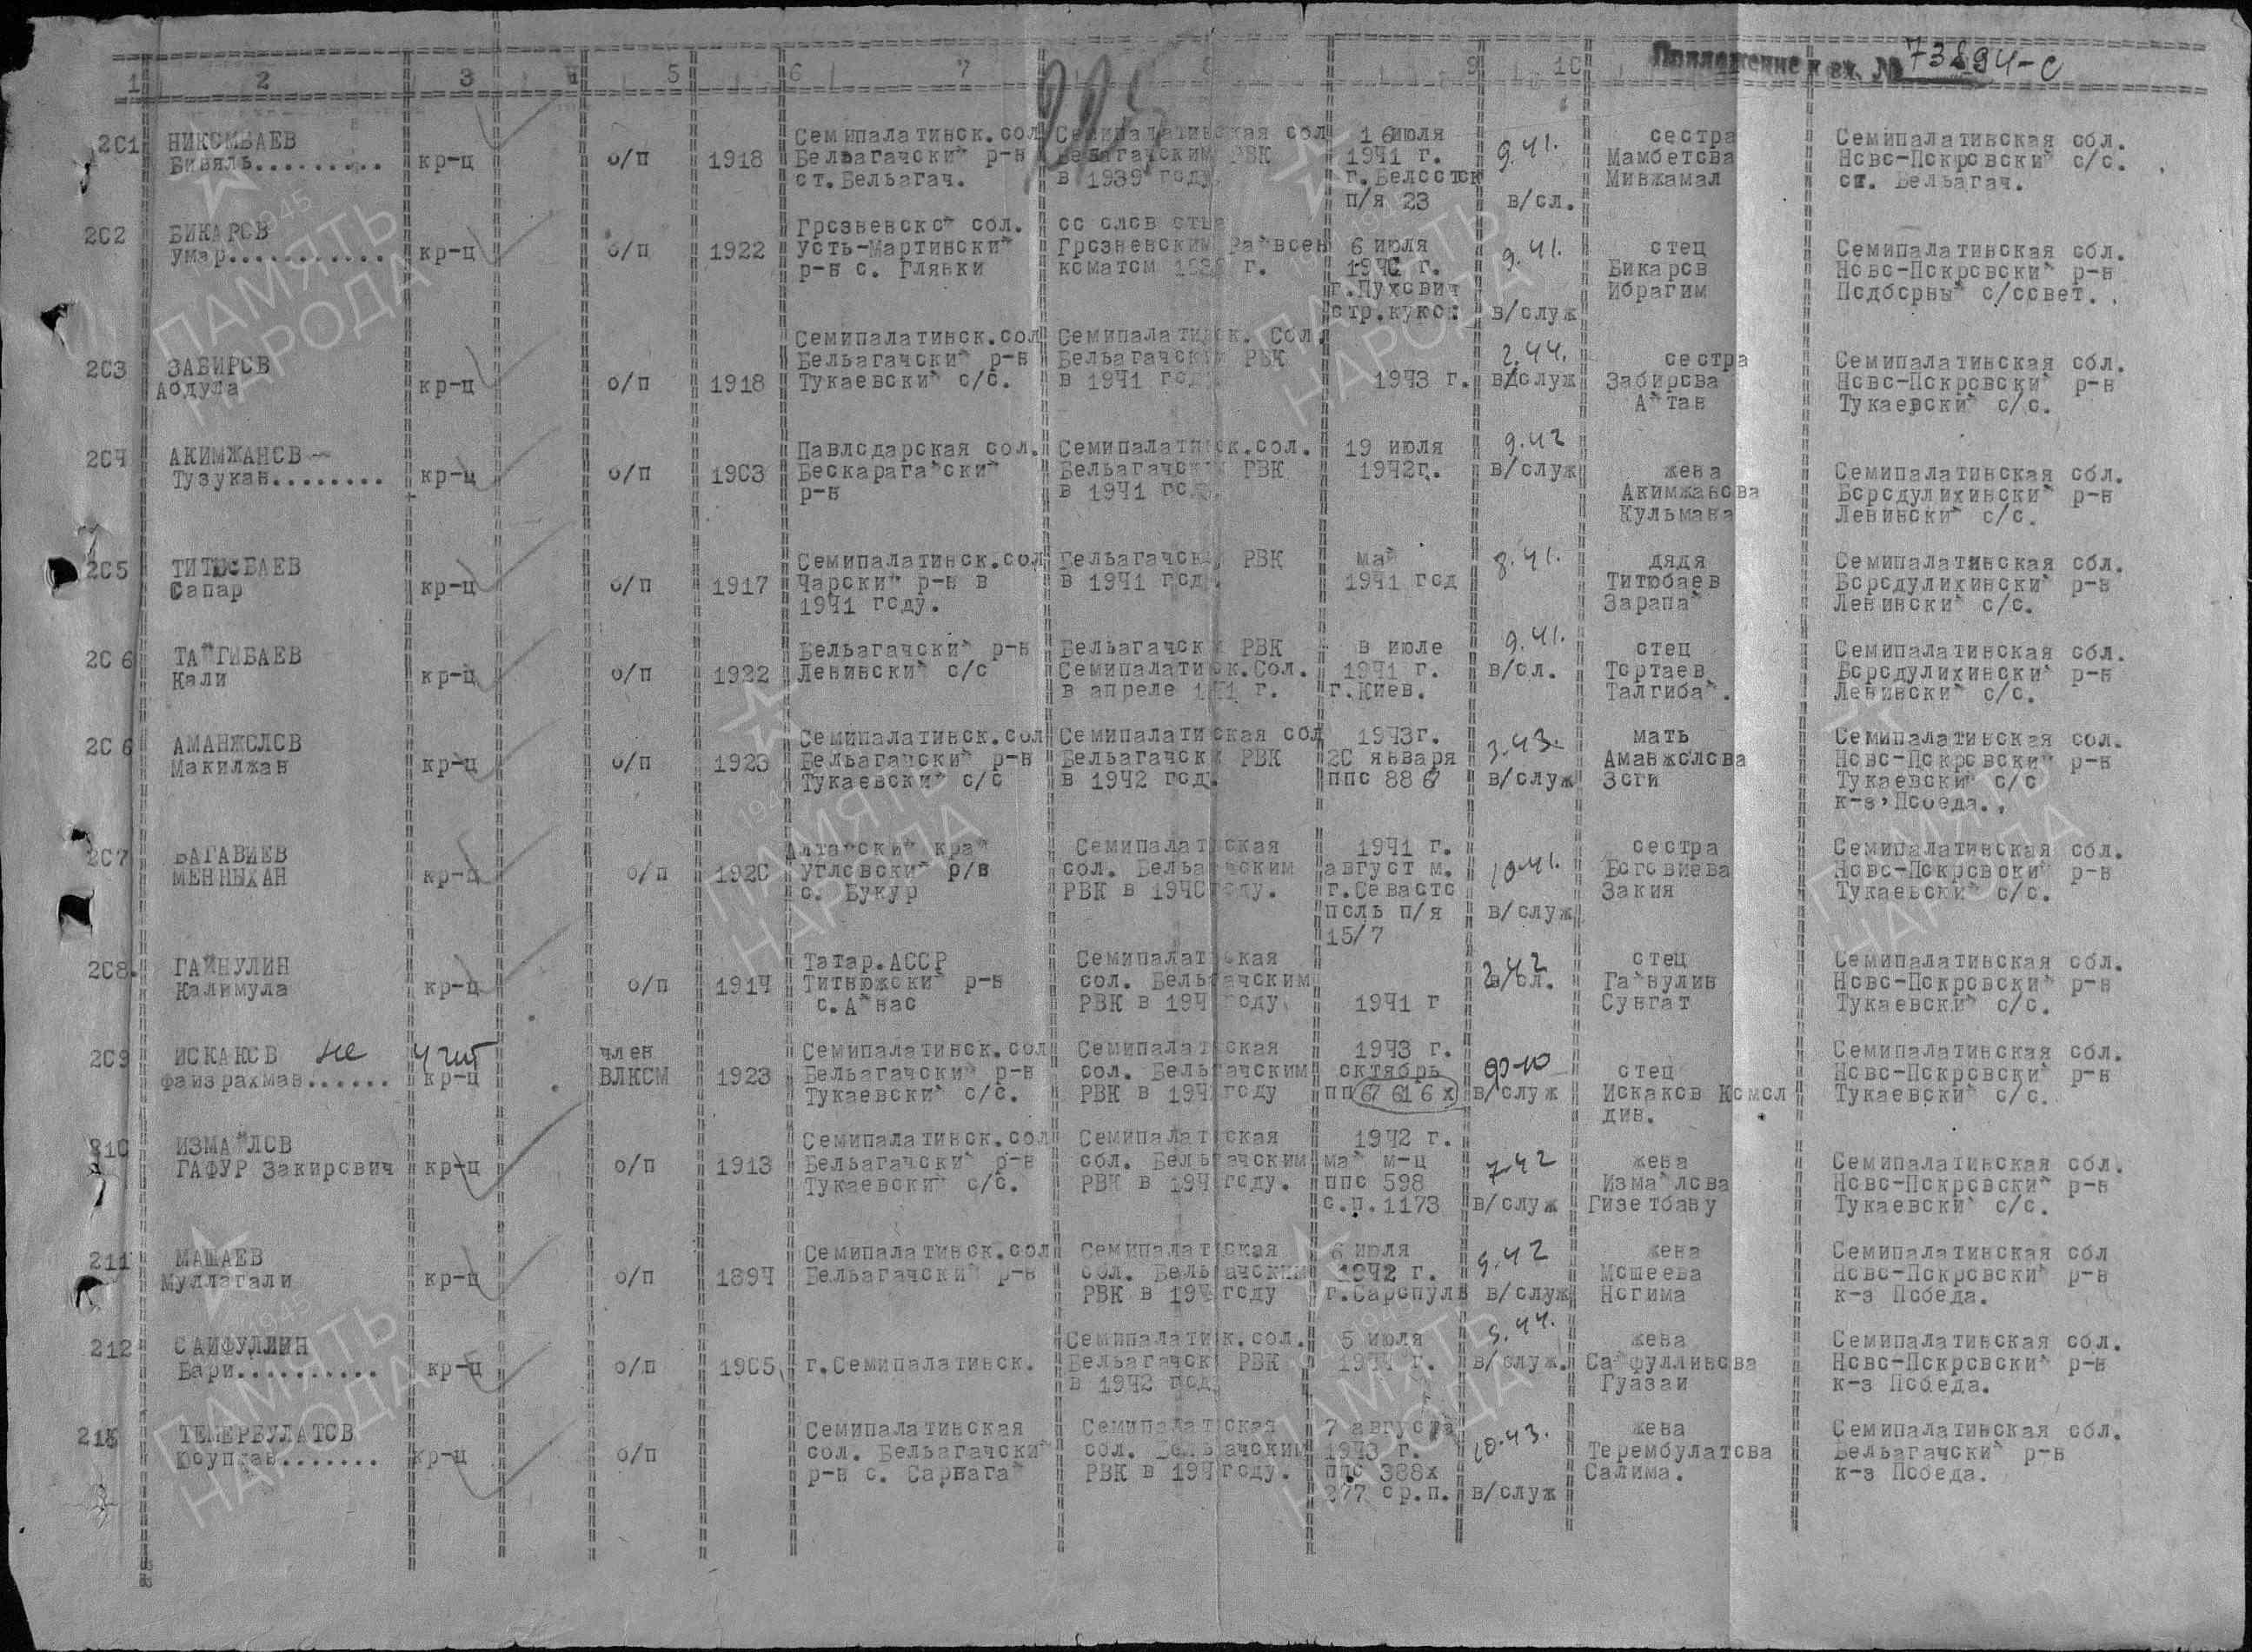 Приложение к вх. № 73894-с
1 2 3 4 5 6 7 8 9 10
225
201 НИКОМБАЕВ Бивяль......... кр-ц о/п 1918 Семипалатинск.обл Бельагачский р-н ст.Бельагач. Семипалатинская обл Бельагачским РВК в 1939 году. 16июля 1941 г. г.Белосток п/я 23 9.41. в/сл. сестра Мамбетова Минжамал Семипалатинская обл. Ново-Покровский с/с. ст. Бельагач.
202 БИКАРОВ умар........... кр-ц о/п 1922 Грозневской обл. усть-Мартински р-н с. Глянки со слов отца Грозневским Райвоенкоматом 6 июля г.Пухович 9.41. в/служ отец Бикаров Ибрагим Семипалатинская обл. Ново-Покровский р-н Подборный с/совет.
203 ЗАБИРОВ Абдула кр-ц о/п 1918 Семипалатинск.обл Бельагачский р-н Тукаевский с/с. Семипалатинск. Обл. Бельагачский РВК в 1941 год 1943 г. 2.44. в/служ сестра Забирова Айтан Семипалатинская обл. Ново-Покровский р-н Тукаевский с/с.
204 АКИМЖАНОВ Тузукан........ кр-ц о/п 1903 Павлодарская обл. Бескарагайский р-н Семипалатинск.обл. Бельагачский РВК в 1941 год. 19 июля 1942г. 9.42 в/служ жена Акимжанова Кульмана Семипалатинская обл. Бородулихинский р-н Ленинский с/с.
205 ТИТЮБАЕВ Сапар кр-ц о/п 1917 Семипалатинск.обл Чарский р-н в 1941 году. Бельагачский РВК в 1941 год. май 1941 год 8.41. дядя Титюбаев Зарапай Семипалатинская обл. Бородулихинский р-н Ленинский с/с.
206 ТАЙГИБАЕВ Кали кр-ц о/п 1922 Бельагачский р-н Ленинский с/с Бельагачский РВК Семипалатинск.Обл. в апреле г. в июле 1941 г. г.Киев. 9.41. в/сл. отец Тортаев Талгибай. Семипалатинская обл. Бородулихинский р-н Ленинский с/с.
206 АМАНЖОЛОВ Макилжан кр-ц о/п 1923 Семипалатинск.обл Бельагачский р-н Тукаевский с/с Семипалатинская обл Бельагачский РВК в 1942 год. 1943г. 20 января ппс 886 3.43. в/служ мать Аманжолова Зоги Семипалатинская обл. Ново-Покровский р-н Тукаевский с/с к-з,Победа.,
207 БАГАВИЕВ МЕННЫХАН кр-ц о/п 1920 Алтайский край угловский р/н с. Букур Семипалатинская обл. Бельагачским РВК в 1940году. 1941 г. август м. г.Севастополь п/я 15/7 10.41. в/служ сестра Боговиева Закия Семипалатинская обл. Ново-Покровский р-н Тукаевский с/с.
208. ГАЙНУЛИН Калимула кр-ц о/п 1914 Татар.АССР Титнюжский р-н с.Айнас Семипалатинская обл. Бельагачским РВК в 194 году 1941 г 2.42 в/сл. отец Гайнулин Сунгат Семипалатинская обл. Ново-Покровский р-н Тукаевский с/с.
209 ИСКАКОВ не учит Файзрахман...... кр-ц член ВЛКСМ 1923 Семипалатинск.обл Бельагачский р-н Тукаевский с/с. Семипалатинская обл. Бельагачским РВК в 194 году 1943 г. октябрь пп 67616х в/служ отец Искаков Комолдин. Семипалатинская обл. Ново-Покровский р-н Тукаевский с/с.
210 ИЗМАЙЛОВ ГАФУР Закирович кр-ц о/п 1913 Семипалатинск.обл Бельагачский р-н Тукаевский с/с. Семипалатинская обл. Бельагачским РВК в 194 году. 1942 г. май м-ц ппс 598 с.п.1173 7.42 в/служ жена Измайлова Гизетбану Семипалатинская обл. Ново-Покровский р-н Тукаевский с/с.
211 МАШАЕВ Муллагали кр-ц о/п 1894 Семипалатинск.обл Бельагачский р-н Семипалатинская обл. Бельагачским РВК в 194 году 6 июля 1942 г. г.Сарпуль 9.42 в/служ жена Мошеева Ногима Семипалатинская обл Ново-Покровский р-н к-з Победа.
212 САЙФУЛЛИН Бари.......... кр-ц о/п 1905 г.Семипалатинск. Семипалатинск.обл. Бельагачск РВК в 1942 год. 5 июля г. в/служ. жена Сайфуллинова Гуазаи Семипалатинская обл. Ново-Покровский р-н к-з Победа.
213 ТЕМЕРБУЛАТОВ Юсупхан....... кр-ц о/п Семипалатинская обл. Бельагачский р-н с. Сарнагай Семипалатинская обл. Бельагачским РВК в 194 году. 7 августа 1943 г. ппс 388х 277 ср.п. 10.43. в/служ жена Терембулатова Салима. Семипалатинская обл. Бельагачский р-н к-з Победа.
ПАМЯТЬ НАРОДА